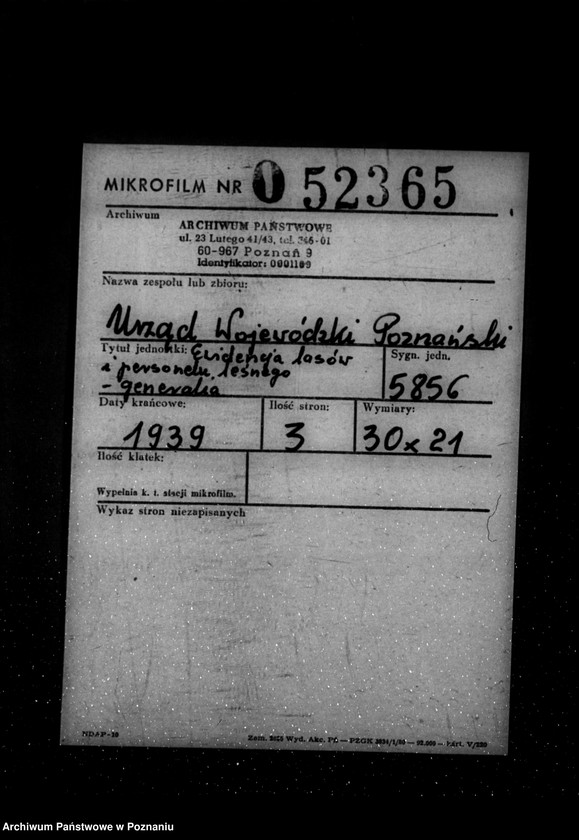 MIKROFILM NR 052365
Archiwum
ARCHIWUM PAŃSTWOWE
ul. 23 Lutego 41/43, tel. 346-01
60-967 Poznań 9
Identyfikator: 0001109
Nazwa zespołu lub zbioru:
Urząd Wojewódzki Poznański
Tytuł jednostki: Ewidencja lasów
i personelu leśnego
- generalia
Sygn. jedn.
5856
Daty krańcowe:
1939
Ilość stron:
3
Wymiary:
30x21
Ilość klatek:
Wypełnia k. t. stacji mikrofilm.
Wykaz stron niezapisanych
NDAP-16
Zam. Wyd. Akc. PŁ — PZGK
Archiwum Państwowe w Poznaniu